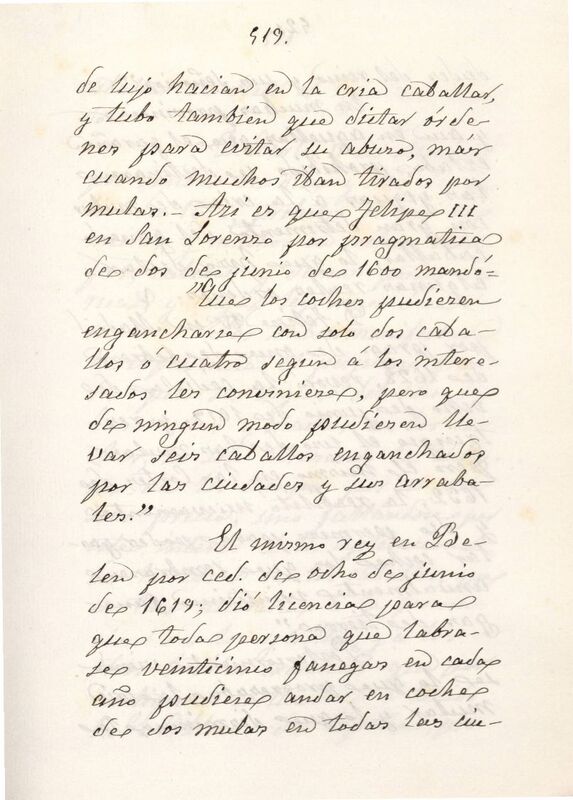 519.
de lujo hacian en la cria caballar,
y tubo tambien que dictar órde-
nes para evitar su abuso, más
cuando muchos iban tirados por
mulas.— Asi es que Felipe III
en San Lorenzo por pragmatica
de dos de junio de 1600 mandó=
"Que los coches pudiesen
engancharse con solo dos caba-
llos ó cuatro segun á los intere-
sados les conviniese, pero que
de ningun modo pudiesen lle-
var seis caballos enganchados
por las ciudades y sus arraba-
les."
El mismo rey en Be-
len por ced. de ocho de junio
de 1619; dió licencia para
que toda persona que labra-
se veinticinco fanegas en cada
año pudiese andar en coche
de dos mulas en todas las ciu-